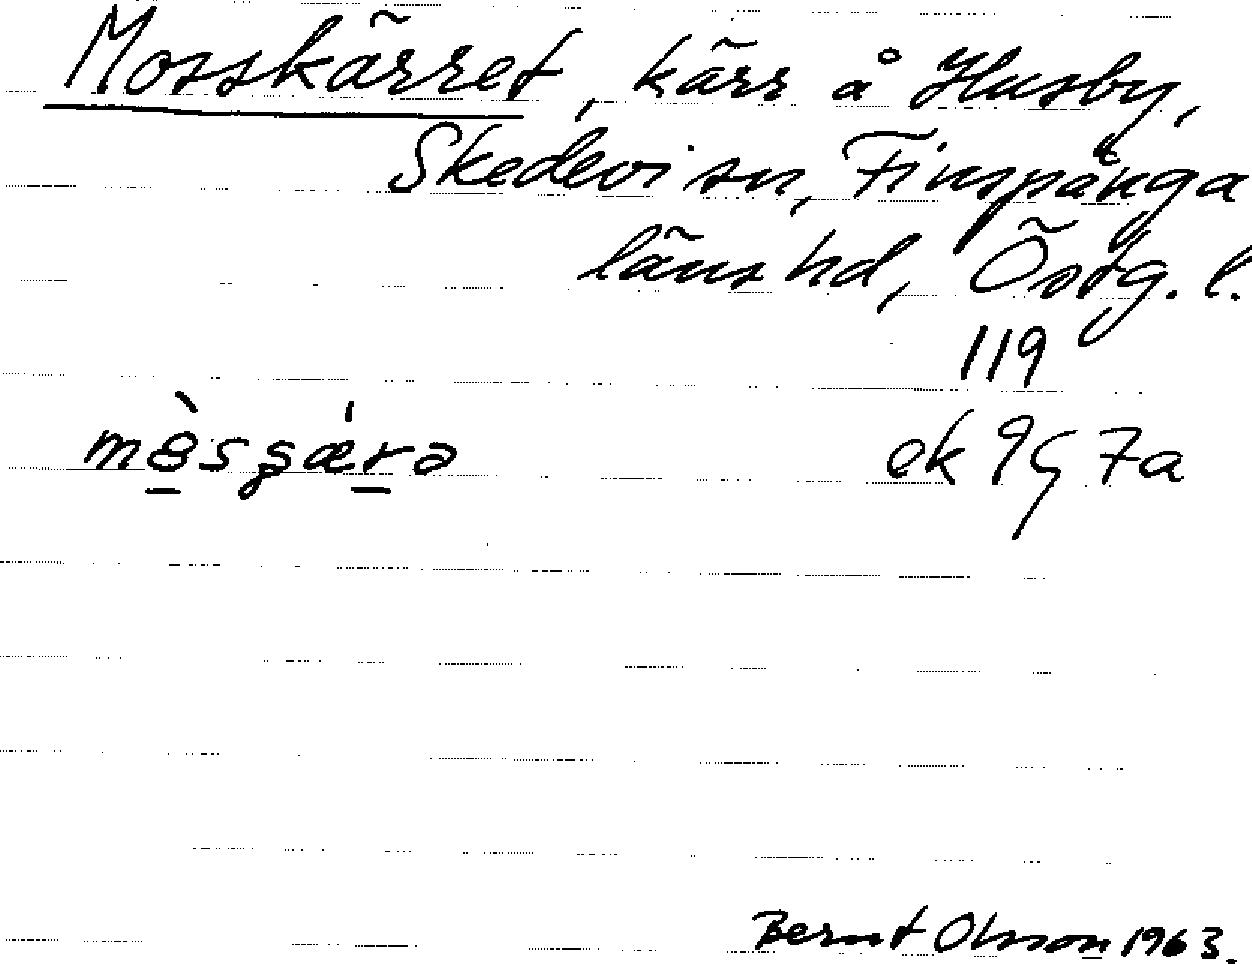 Mosskärret, kärr å Husby,
Skedevi sn, Finspånga
läns hd, Östg. l.
119
ek 9G 7a
Bernt Olsson 1963.